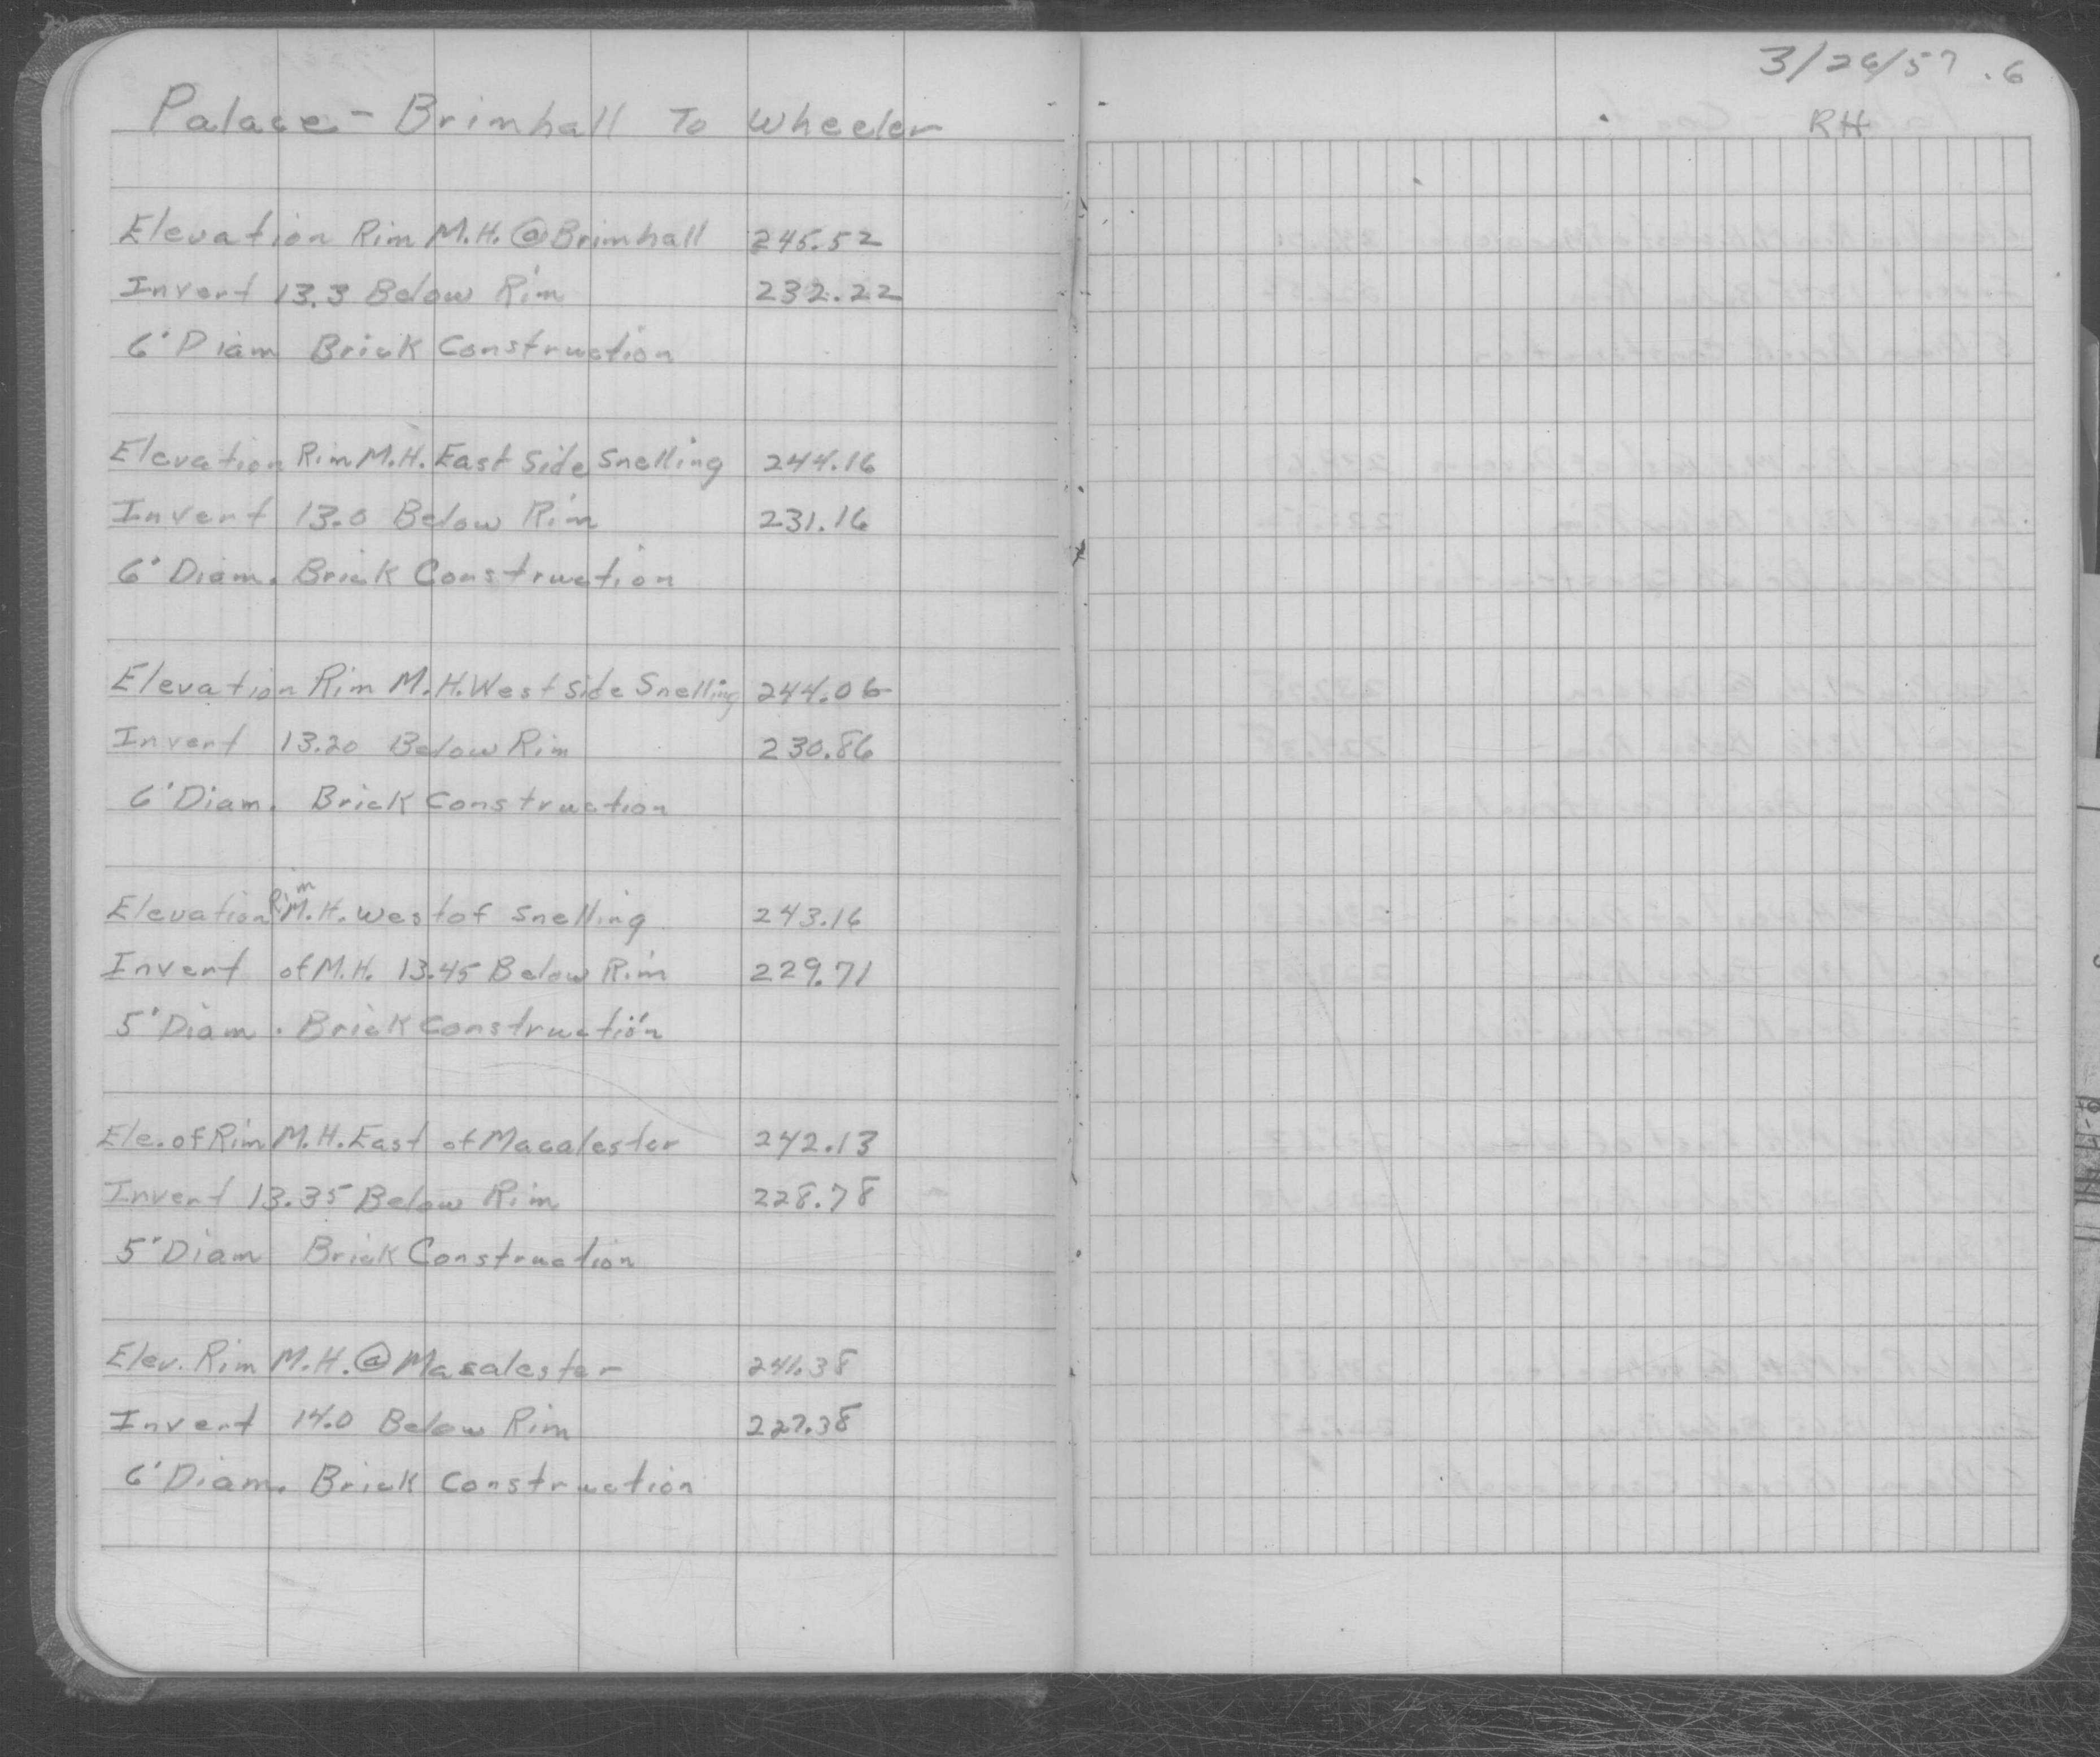 Palace - Brimhall To Wheeler
Elevation Rim M.H. @ Brimhall 245.52
Invert 13.3 Below Rim 232.22
6' Diam Brick Construction
Elevation Rim M.H. East Side Snelling 244.16
Invert 13.0 Below Rim 231.16
6' Diam. Brick Construction
Elevation Rim M.H. West Side Snelling 244.06
Invert 13.20 Below Rim 230.86
6' Diam. Brick Construction
Elevation Rim M.H. West of Snelling 243.16
Invert of M.H. 13.45 Below Rim 229.71
5' Diam. Brick Construction
Ele. of Rim M.H. East of Macalester 242.13
Invert 13.35 Below Rim 228.78
5' Diam Brick Construction
Elev. Rim M.H. @ Macalester 241.38
Invert 14.0 Below Rim 227.38
6' Diam. Brick Construction
3/26/57 .6
RH